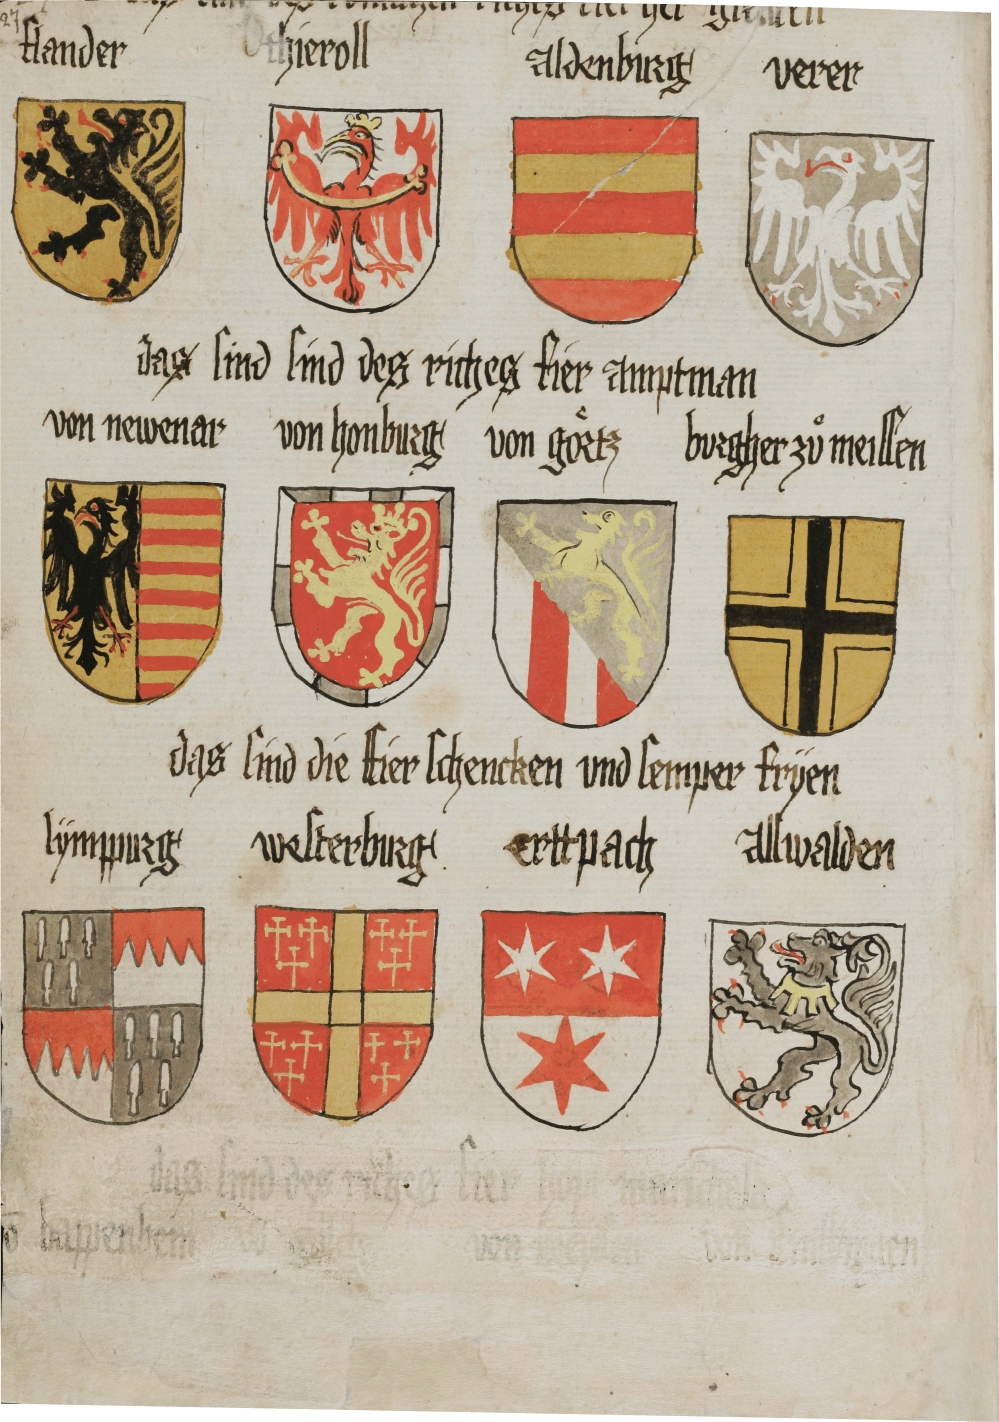 27
das sind des romschen richs vier her graven
flander thieroll aldenburg verer
das sind sind des riches fier amptman
von newenar von honburg von goͤrtz burgher zů meissen
das sind die fier schencken und semper fryen
lÿmppurg westerburg erttpach Allwalden
das sind des riches fier
bappenhem von von